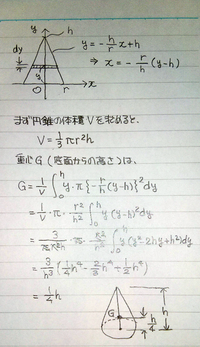 y
h
dy
y = -h/r x + h
⇒ x = -r/h (y-h)
y
O r → x
まず円錐の体積Vを求めると、
V = 1/3 πr²h
重心G(底面からの高さ)は、
G = 1/V ∫₀ʰ y・π{-r/h (y-h)}² dy
= 1/V・π・r²/h² ∫₀ʰ y(y-h)² dy
= 3/πr²h・π・r²/h² ∫₀ʰ y(y²-2hy+h²)dy
= 3/h³ (1/4 h⁴ - 2/3 h⁴ + 1/2 h⁴)
= 1/4 h
G
h
h/4